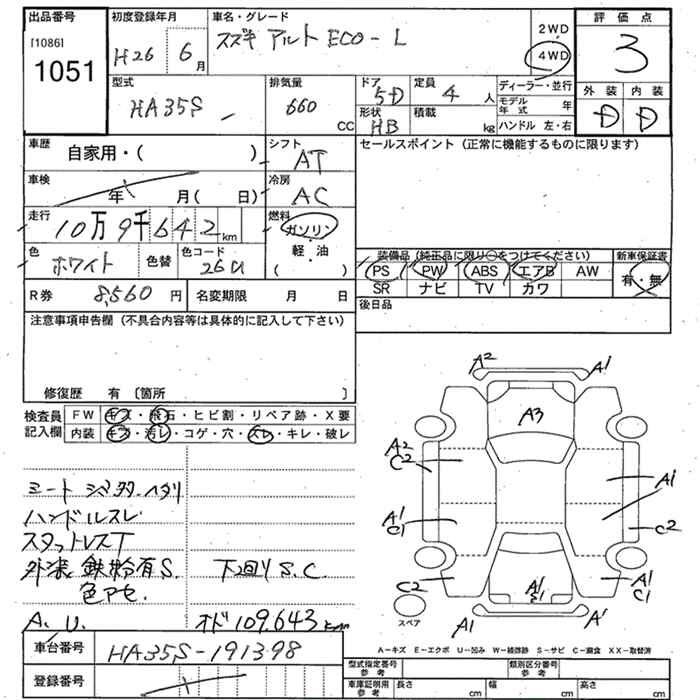 出品番号 初度登録年月 車名・グレード 評価点
[1086] H26 6月 スズキ アルト ECO-L 2WD 4WD 3
1051
型式 排気量 ドア 定員 ディーラー・並行 外装 内装
HA35S 660 CC 5D 4人 モデル年式 年 D D
形状 積載
HB kg ハンドル 左・右
車歴 シフト セールスポイント (正常に機能するものに限ります)
自家用・( ) AT
車検 冷房
年 月( 日) AC
走行 燃料
10万9千642km ガソリン
色 色替 色コード 軽・油
ホワイト 26U ( )
装備品 (純正品に限り○をつけてください) 新車保証書
PS PW ABS エアB AW 有・無
SR ナビ TV カワ
R券 8,560円 名変期限 月 日 後日品
注意事項申告欄 (不具合内容等は具体的に記入して下さい)
修復歴 有 〔箇所 〕
検査員 FW キズ・飛石・ヒビ割・リペア跡・X要
記入欄 内装 キズ・汚レ・コゲ・穴・スレ・キレ・破レ
ハンドルスレ
スタットレスT
外装 鉄粉有S. 下回りS.C.
色アセ.
A. U. オド109,643km
車台番号 HA35S-191398
登録番号
A2 A1
A3
A2 C2
A1
A1 C1
C2
C2 A1 C1 A1 C1
A1 A1
スペア
A-キズ E-エクボ U-凹み W-補修跡 S-サビ C-腐食 XX-取替済
型式指定番号 参考 類別区分番号 参考
車庫証明用 参考 長さ cm 幅 cm 高さ cm